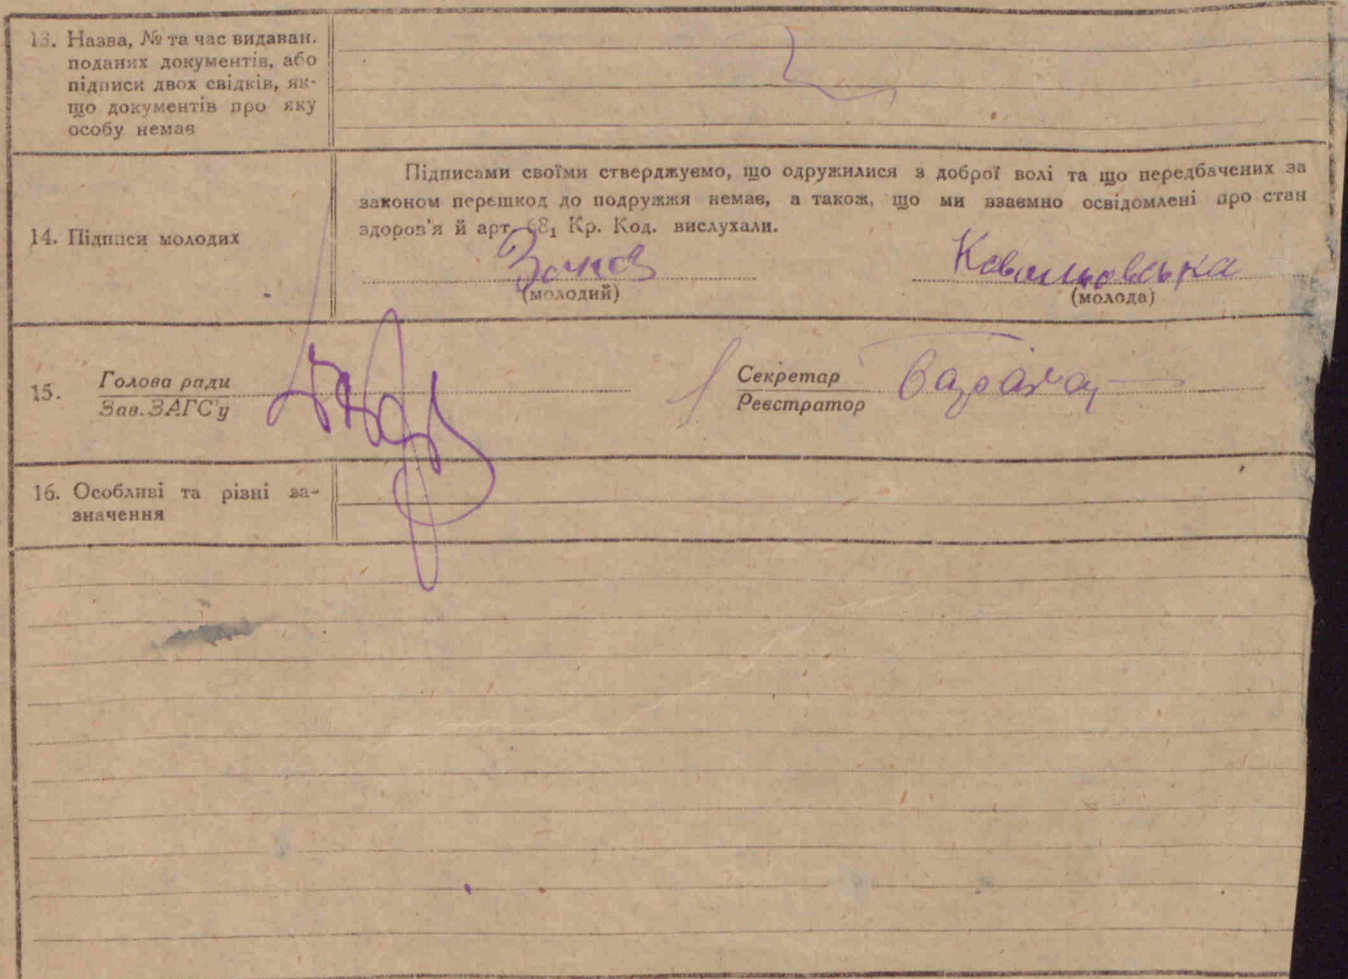 13. Назва, № та час видаван.
поданих документів, або
підписи двох свідків, як-
що документів про яку
особу немає
Підписами своїми стверджуємо, що одружилися з доброї волі та що передбачених за
законом перешкод до подружжя немає, а також, що ми взаємно освідомлені про стан
здоров'я й арт. 68₁ Кр. Код. вислухали.
14. Підписи молодих
(молодий)
(молода)
15. Голова ради
Зав. ЗАГС'у
Секретар
Реєстратор
16. Особливі та різні за-
значення